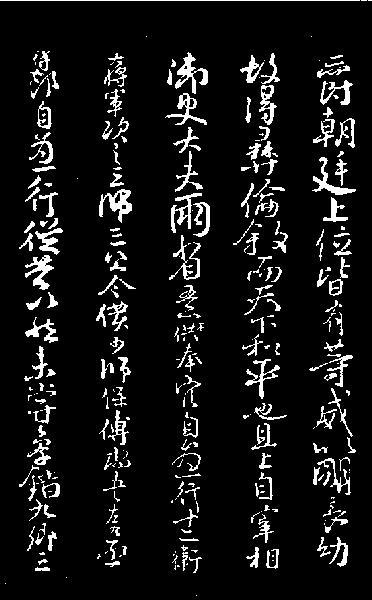 爵朝廷上位皆有等威以明長幼
故得彝倫敘而天下和平也且上自宰相
御史大夫兩省五品以上供奉官自為一行十二衛
大將軍次之三師三公令僕少師保傅尚書左右丞
侍郎自為一行從古以然未嘗參錯九卿三